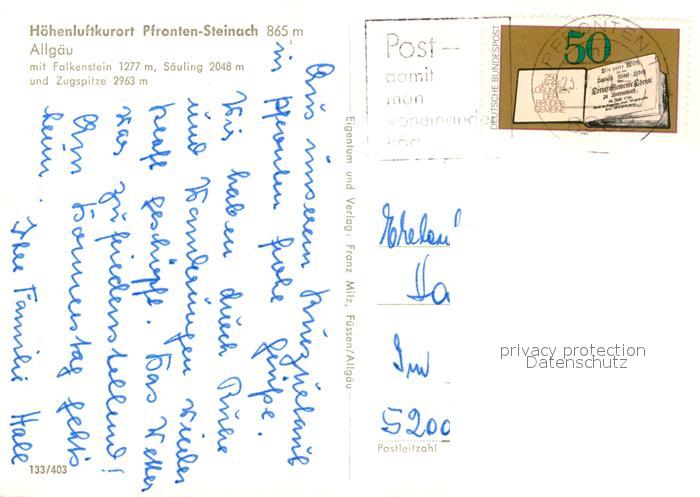 Höhenluftkurort Pfronten-Steinach 865 m
Allgäu
mit Falkenstein 1277 m, Säuling 2048 m
und Zugspitze 2963 m
Aus unserem Kurzurlaub
in Pfronten frohe Grüße.
Wir haben durch Ruhe
und Wanderungen wieder
Kraft geschöpft. Das Wetter
war zufriedenstellend!
Am Donnerstag geht's
heim. Ihre Familie
133/403
Eigentum und Verlag: Franz Milz, Füssen/Allgäu
Post-
damit
man
voneinander
hört
PFRONTEN
DEUTSCHE BUNDESPOST
50
250
JAHRE
LOSUNGEN
DER
BRÜDER
GEMEINE
5200
Postleitzahl
privacy protection
Datenschutz